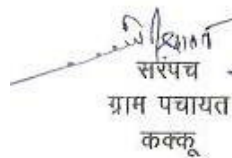 सरपंच
ग्राम पचायत
कक्कू